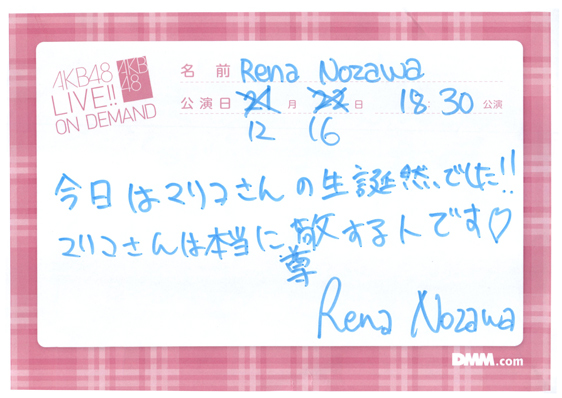 AKB48
LIVE!!
ON DEMAND
AKB
48
名 前 Rena Nozawa
公演日 21 月 22 日 18:30 公演
12 16
今日はマリコさんの生誕祭でした!!
マリコさんは本当に敬する人です♡
尊
Rena Nozawa
DMM.com